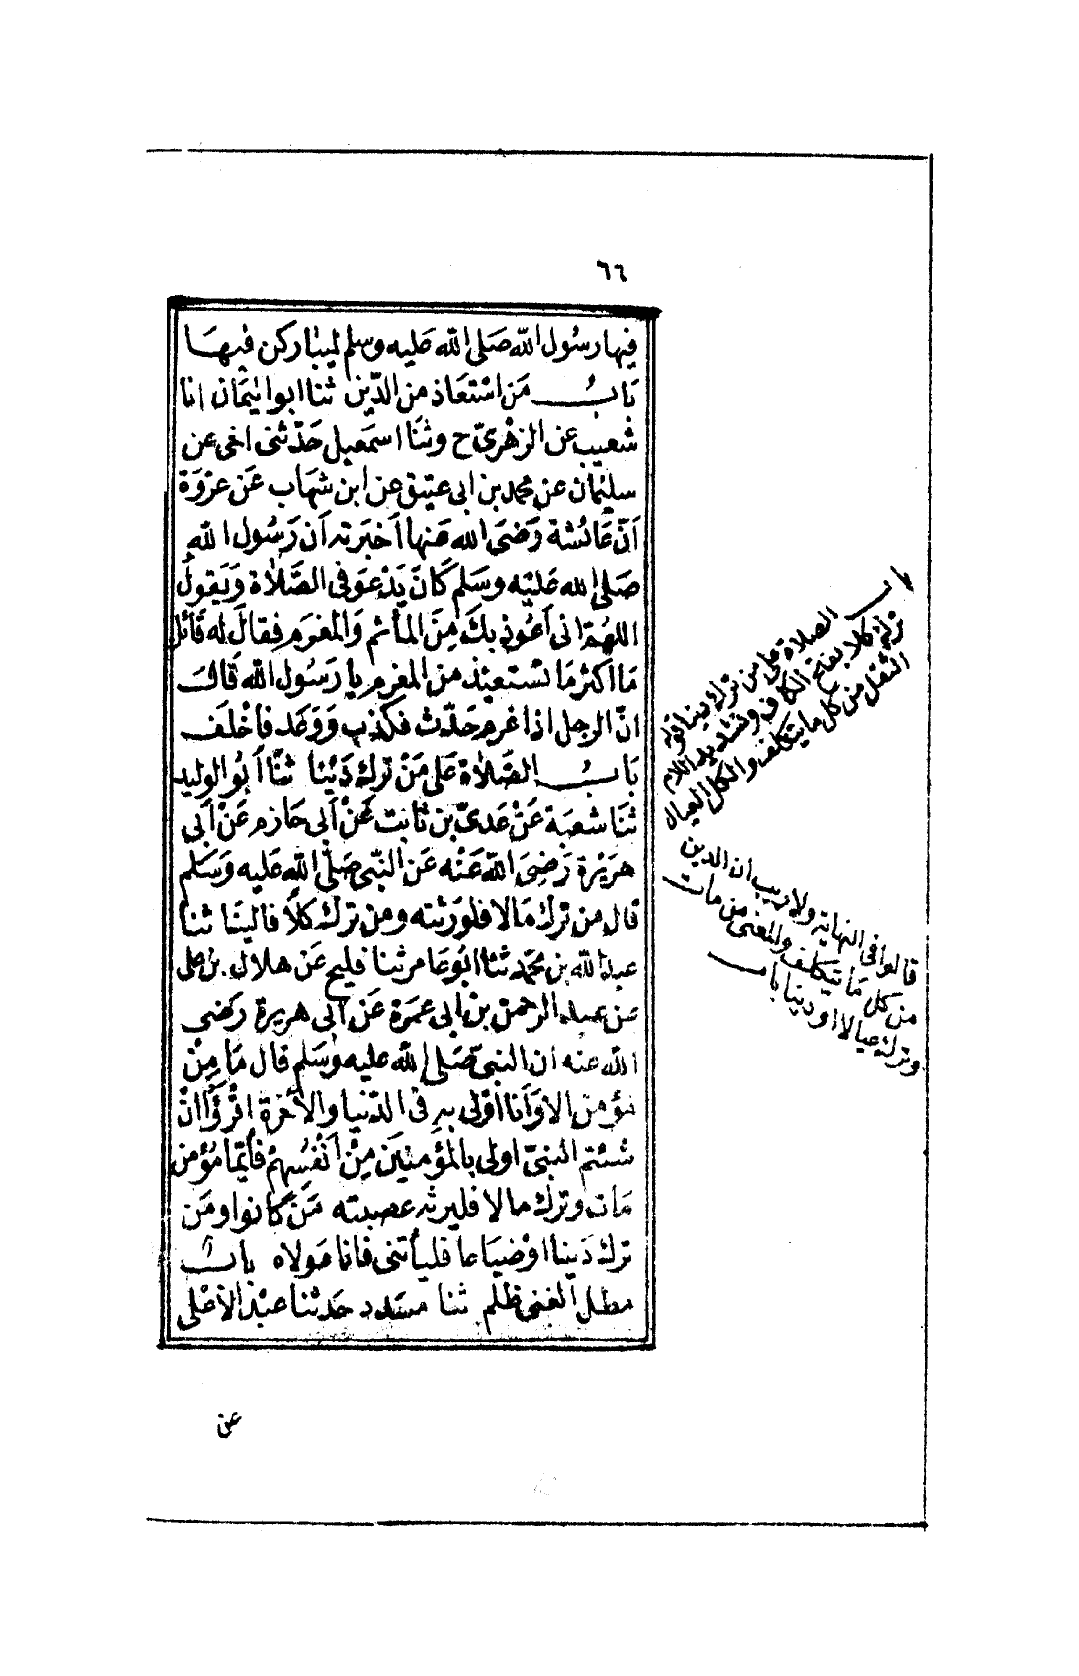 ٦٦
فيها رسول الله صلى الله عليه وسلم ليباركن فيها
باب من استعاذ من الدين ثنا ابو اليمان انا
شعيب عن الزهري ح وثنا اسمعيل حدثنى اخى عن
سليمان عن محمد بن ابى عتيق عن ابن شهاب عن عروة
أن عائشة رضى الله عنها أخبرته أن رسول الله
صلى الله عليه وسلم كان يدعو فى الصلاة ويقول
اللهم انى أعوذ بك من المأثم والمغرم فقال له قائل
ما اكثر ما تستعيذ من المغرم يا رسول الله قال
ان الرجل اذا غرم حدث فكذب ووعد فأخلف
باب الصلاة على من ترك دينا ثنا أبو الوليد
ثنا شعبة عن عدى بن ثابت عن أبى حازم عن أبى
هريرة رضى الله عنه عن النبى صلى الله عليه وسلم
قال من ترك مالا فلورثته ومن ترك كلا فالينا ثنا
عبد الله بن محمد ثنا ابو عامر ثنا فليح عن هلال بن على
عن عبد الرحمن بن ابى عمرة عن ابى هريرة رضى
الله عنه ان النبى صلى الله عليه وسلم قال ما من
مؤمن الا وأنا اولى به فى الدنيا والآخرة اقرؤا ان
شئتم النبى اولى بالمؤمنين من أنفسهم فأيما مؤمن
مات وترك مالا فليرثه عصبته من كانوا ومن
ترك دينا او ضياعا فليأتنى فانا مولاه باب
مطل الغنى ظلم ثنا مسدد حدثنا عبد الأعلى
عن
باب الصلاة على من ترك دينا قوله
ترك كلا بفتح الكاف وتشديد اللام
الثقل من كل ما يتكلف والكل العيال
قالوا فى النهاية ولا ريب أن الدين
من كل ما يتكلف والمعنى من مات
وترك عيالا او دينا باب